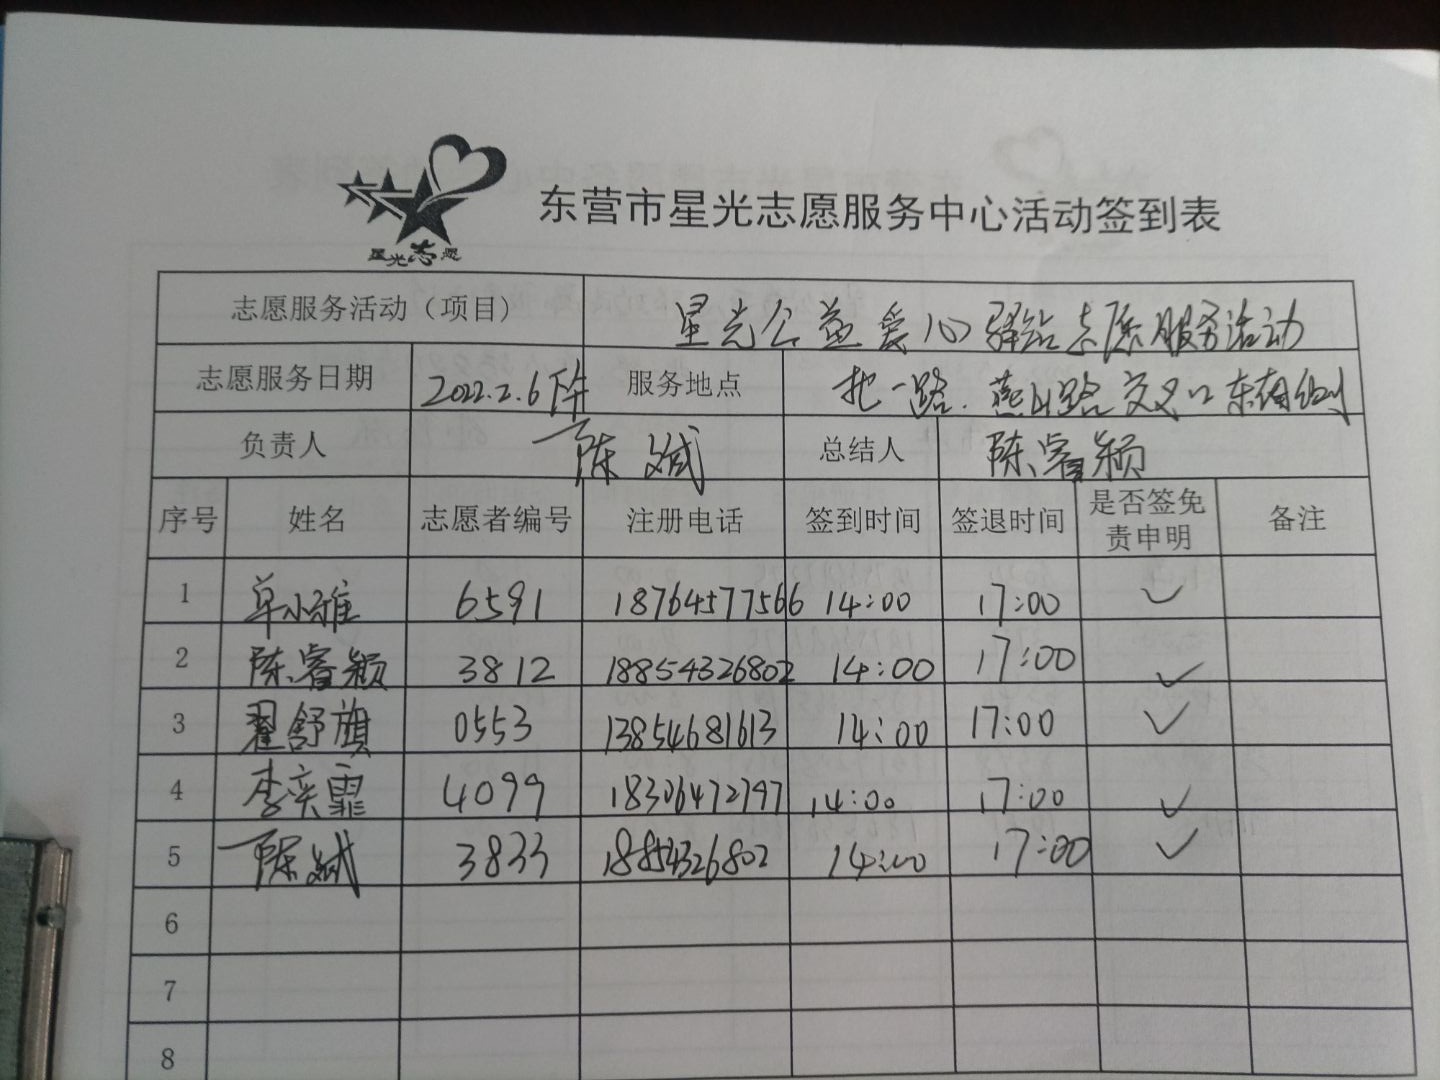 星光志愿
东营市星光志愿服务中心活动签到表
志愿服务活动（项目） 星光公益爱心驿站志愿服务活动
志愿服务日期 2022.2.6下午 服务地点 北一路.燕山路交叉口东南侧
负责人 陈斌 总结人 陈睿颖
序号 姓名 志愿者编号 注册电话 签到时间 签退时间 是否签免责申明 备注
1 单小雅 6591 18764577566 14:00 17:00 ✓
2 陈睿颖 3812 18854326802 14:00 17:00 ✓
3 翟舒旗 0553 13854681613 14:00 17:00 ✓
4 李奕霏 4099 18306472797 14:00 17:00 ✓
5 陈斌 3833 18854326802 14:00 17:00 ✓
6
7
8